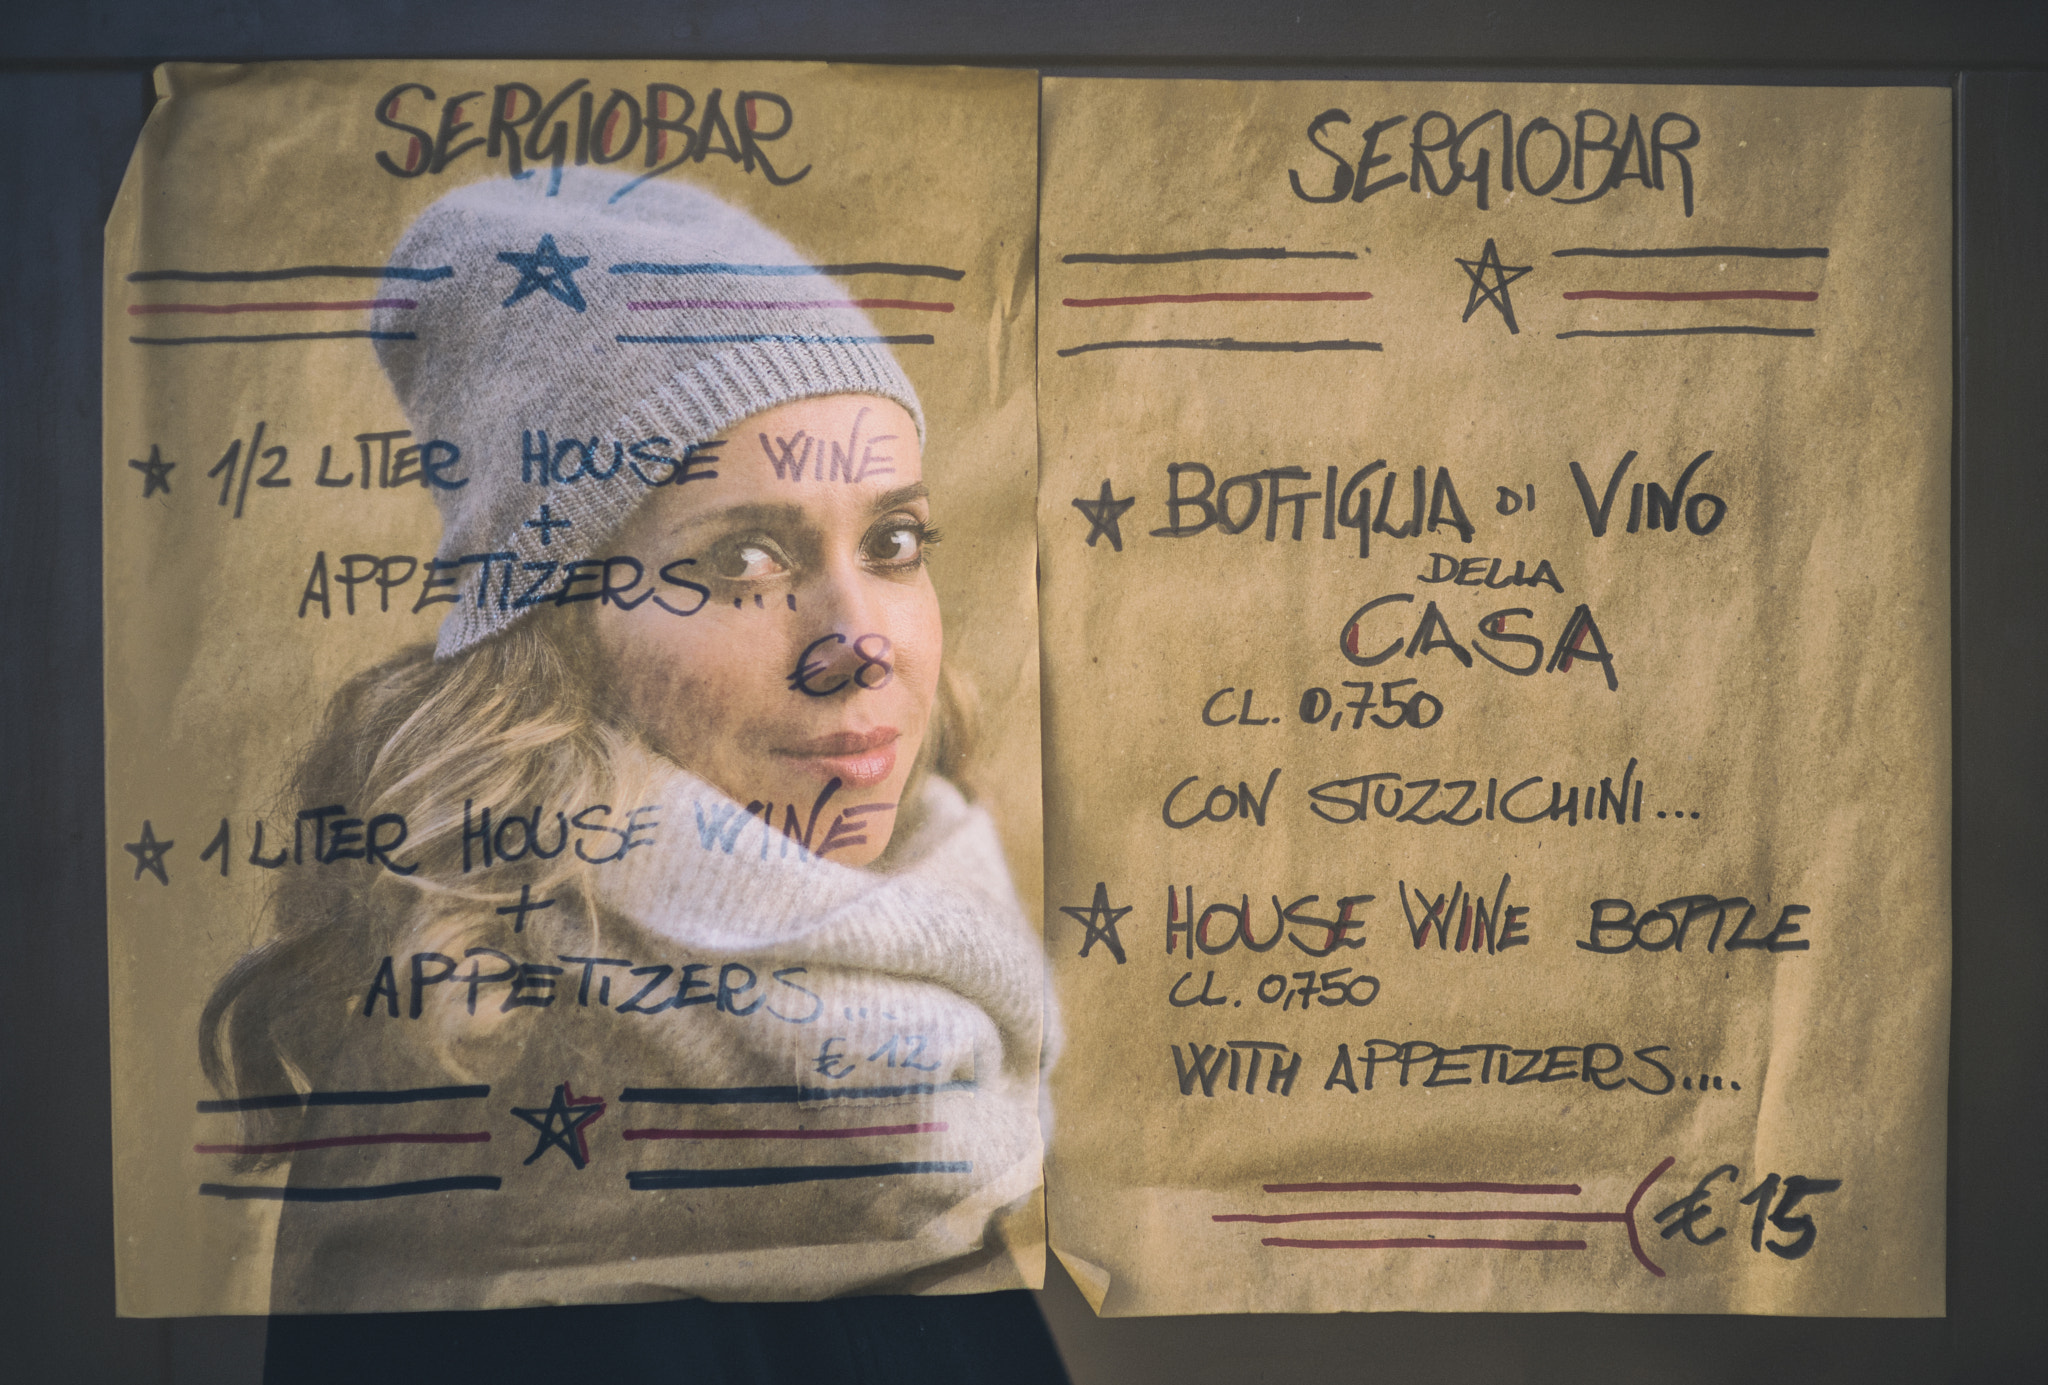 SERGIOBAR
1/2 LITER HOUSE WINE
+
APPETIZERS...
€8
1 LITER HOUSE WINE
+
APPETIZERS...
€ 12
SERGIOBAR
BOTTIGLIA DI VINO
DELLA
CASA
CL. 0,750
CON STUZZICHINI...
HOUSE WINE BOTTLE
CL. 0,750
WITH APPETIZERS....
€ 15